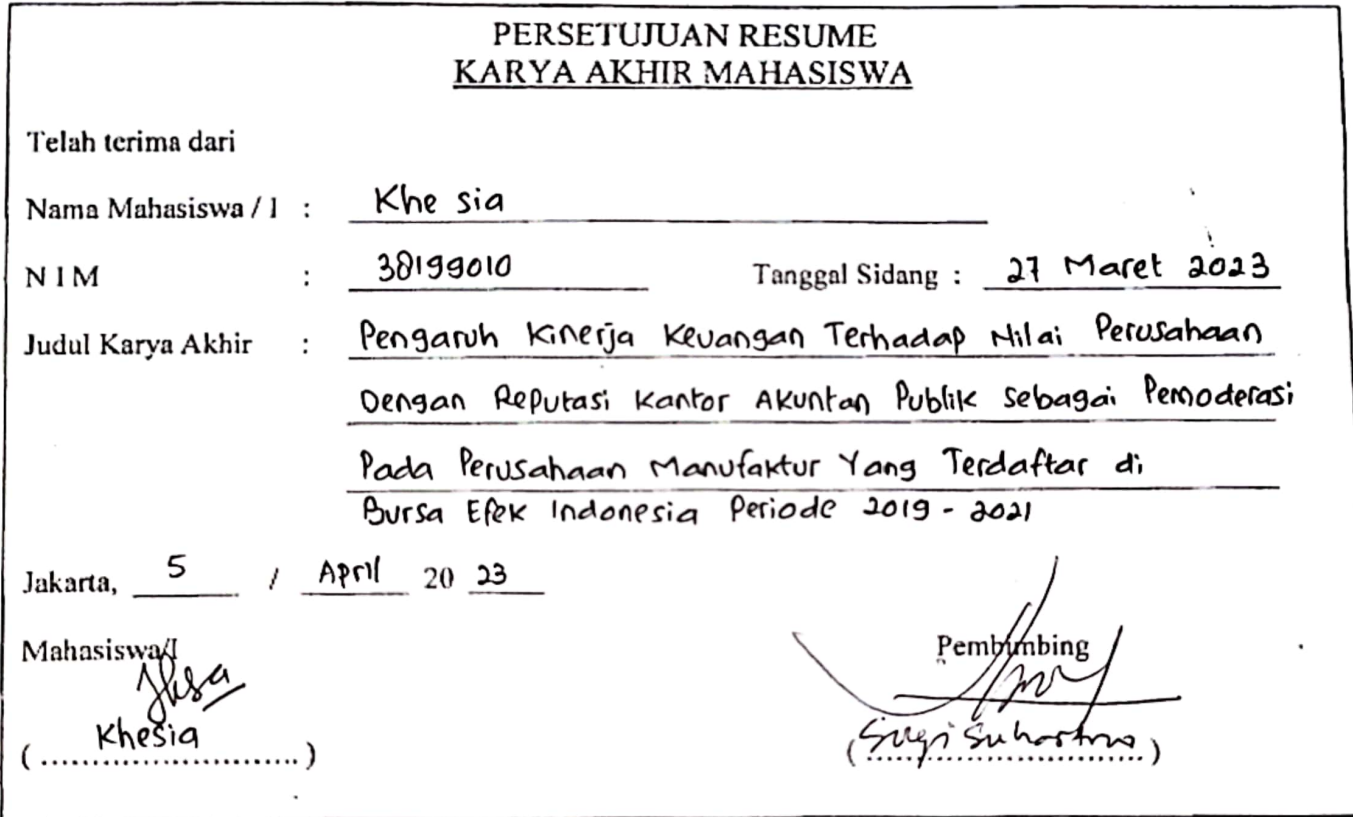 PERSETUJUAN RESUME
KARYA AKHIR MAHASISWA
Telah terima dari
Nama Mahasiswa / I : Khe sia
N I M : 38199010 Tanggal Sidang : 27 Maret 2023
Judul Karya Akhir : Pengaruh Kinerja Keuangan Terhadap Nilai Perusahaan
Dengan Reputasi Kantor Akuntan Publik Sebagai Pemoderasi
Pada Perusahaan Manufaktur Yang Terdaftar di
Bursa Efek Indonesia Periode 2019 - 2021
Jakarta, 5 / April 20 23
Mahasiswa/I Pembimbing
(Khesia) (Sugi Suhartono)